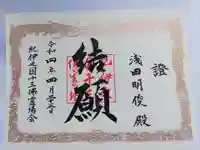 證
浅田明俊 殿
結願
令和四年四月
紀伊之国十三佛霊場会